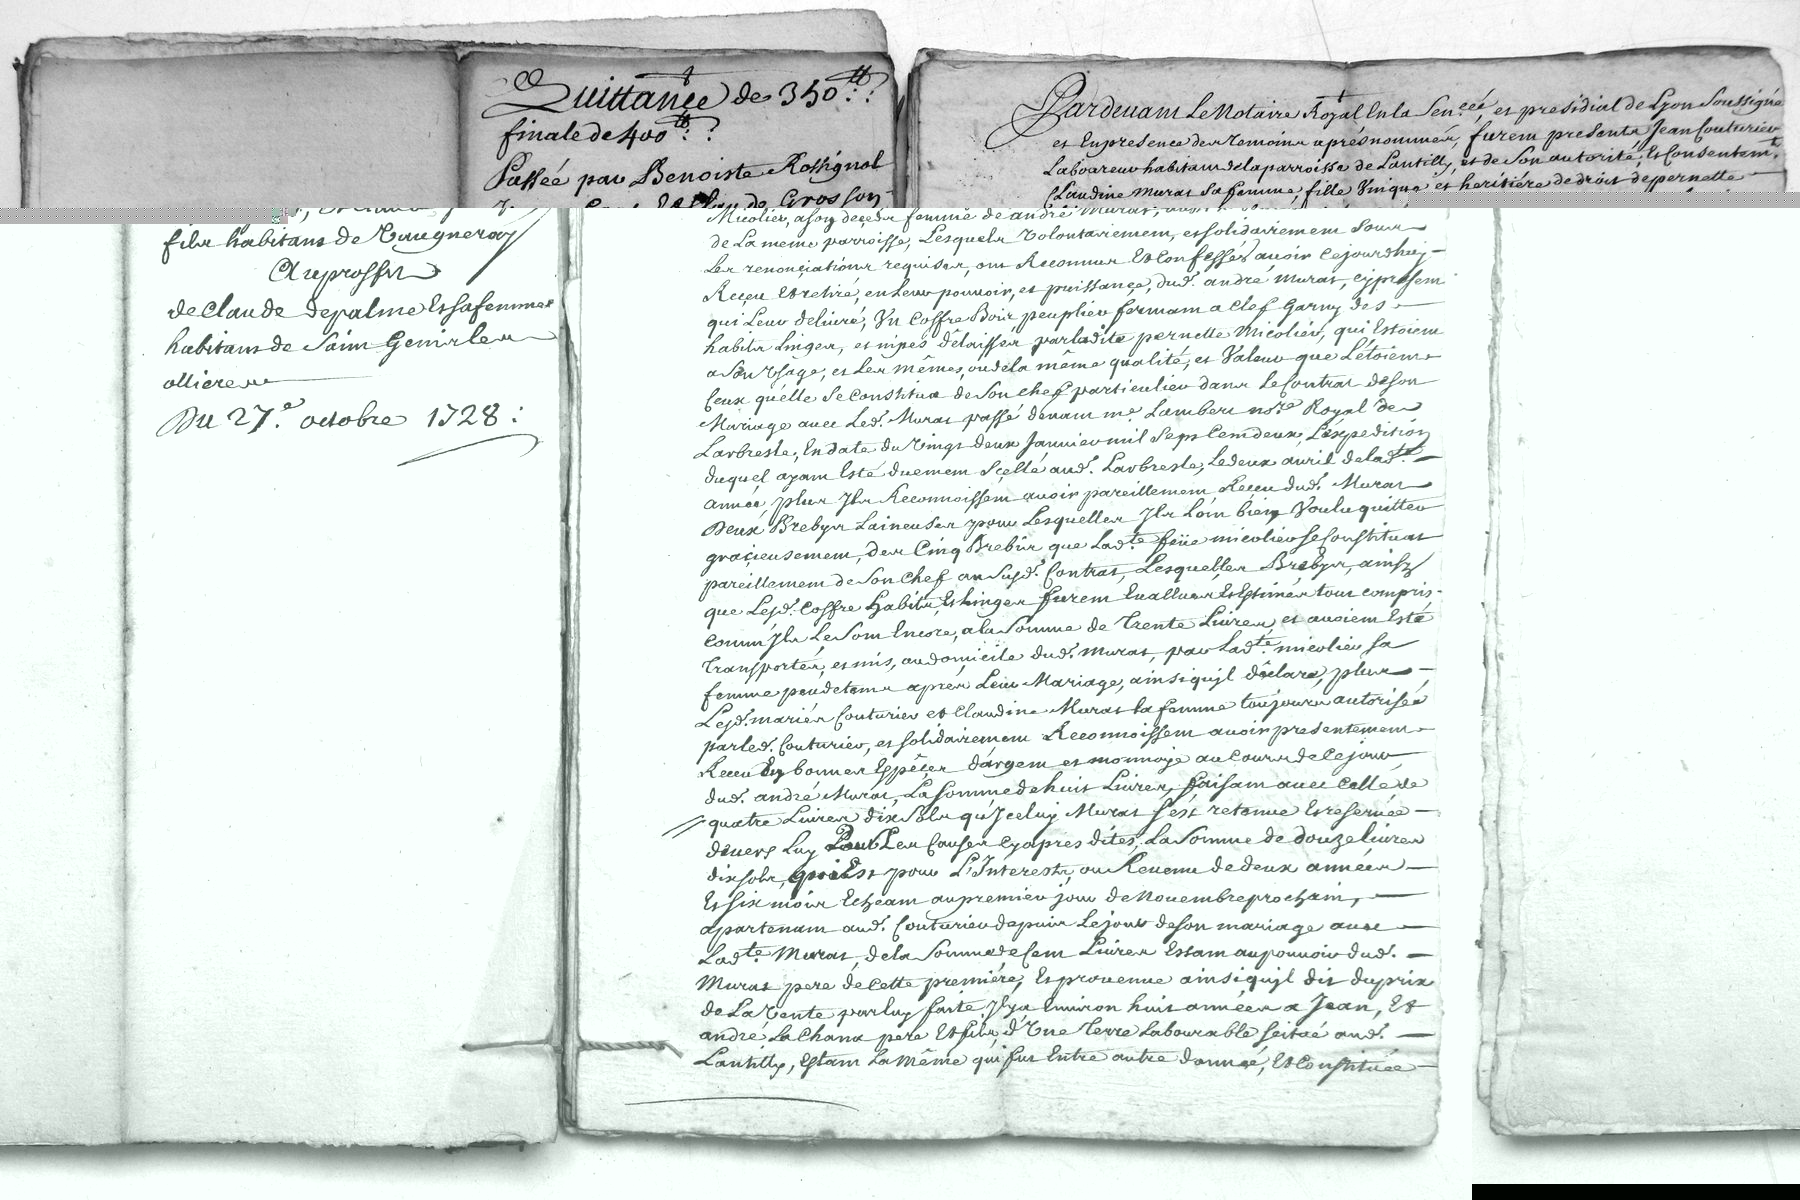 Quittance de 350ᵗᵗ :
finale de 400ᵗᵗ :
Passée par Benoiste Rossignol
de Grosson
fils habitans de Vaugneray
Au proffit
de Claude depalme Et sa femme
habitans de Saint Genis les
ollieres
Du 27.ᵉ octobre 1728 :
Pardevant Le Notaire Royal En la Sen.ᶜᵉᵉ, et presidial de Lyon Soussigné
et En presence des temoins aprés nommés, furent presents Jean Couturier
Laboureur habitant de la parroisse de Lantilly, et de Son autorité, Et Consentemᵗ.
Claudine Murat Sa femme, fille Unique et heritiére de droit de pernette
Micolier, a son decedz femme de andré Murat,
de La meme parroisse, Lesquels Volontairement, et solidairement Sous
Les renonciations requises, ont Reconnus Et Confessés avoir Cejourdhuy
Reçeu Et retiré, en Leur pouvoir, et puissançe, dud. andré Murat, cy present
qui Leur delivré, Un Coffre Bois peuplier fermant a Clef Garny des
habits Linges, et nipes délaissés par ladite pernette Micolier, qui Estoient
a Son Usage, et Les mêmes, ou de la même qualité, et Valeur que L'étoient
Ceux qu'elle Se Constitua de Son chef particulier dans Le Contrat de son
Mariage avec Led. Murat passé devant mᵉ Lambert noʳᵉ Royal de
Larbresle, En date du Vingt deux Janvier mil Sept Cent deux, L'expedition
duquel ayant Esté duement Sçellé aud. Larbresle, Le deux avril de lad.ᵗᵉ
année, plus Ils Reconnoissent avoir pareillement Reçeu dud. Murat
Deux Brebys Laineuses pour Lesquelles Ils L'ont bien Voulu quitter
graçieusement, des Cinq Brebis que Lad.ᵗᵉ feüe micolier se Constitua
pareillement de Son Chef au Susd. Contrat, Lesquelles Brebys, ainsy
que Lesd. Coffre Habits, Et Linges furent Evallués Et Estimés tous compris,
comm'Ils Le Sont Encore, a la Somme de Trente Livres, et avoient Esté
Transportés, et mis, au domicile dud. Murat, par Lad.ᵗᵉ micolier sa
femme peu de tems aprés Leur Mariage, ainsi qu'il déclare, plus
Lesd. mariés Couturier et Claudine Murat sa femme toujours autorisée
par led. Couturier, et solidairement Reconnoissent avoir presentement
Reçeu En bonnes Espéçes d'argent et monnoye au Cours de Ce jour,
dud. andré Murat, La Somme de huit Livres, faisant avec Celle de
quatre Livres dix Sols qu'Iceluy Murat s'est retenue Et reservée
devers Luy Pour Les Causes cy aprés dites, La Somme de douze livres
dix sols, qui Est pour L'Interests, ou Revenu de deux années
Et six mois Echeant au premier jour de Novembre prochain,
apartenant aud. Couturier depuis Le jour de son mariage avec
Lad.ᵗᵉ Murat, de la Somme de Cent Livres Estant au pouvoir dud.
Murat pere de Cette premiére, Et provenue ainsi qu'il dit du prix
de La Vente par luy faite Il y a Environ huit années a Jean, Et
andré La Chana pere Et fils, d'Une Terre Labourable scituée aud.
Lantilly, Estant La Même qui fut Entre autre donnée, Et Constituée